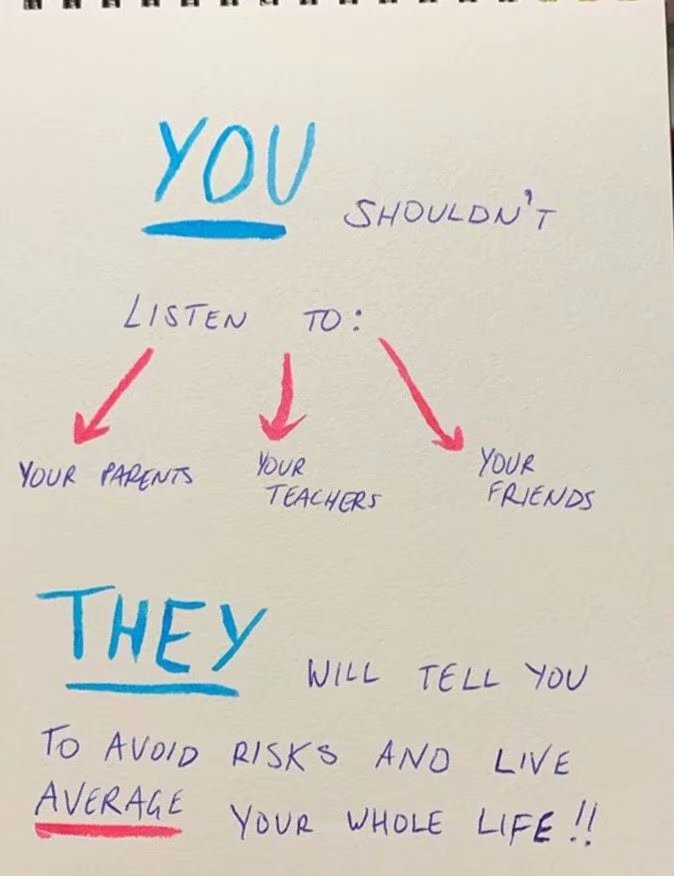 YOU SHOULDN'T
LISTEN TO:
YOUR PARENTS
YOUR
TEACHERS
YOUR
FRIENDS
THEY WILL TELL YOU
TO AVOID RISKS AND LIVE
AVERAGE YOUR WHOLE LIFE!!